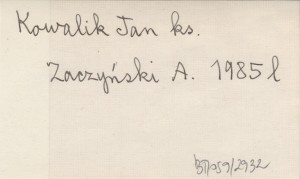 Kowalik Jan ks.
Zaczyński A. 1985 l
BT/059/2932